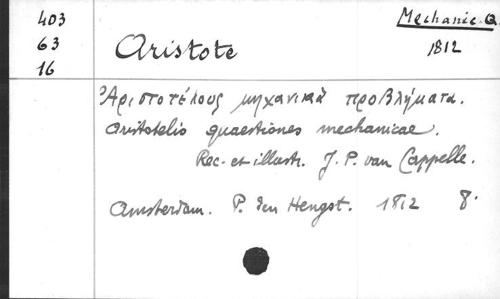 403
63
16
Mechanic. Q
1812
Aristote
Ἀριστοτέλους μηχανικὰ προβλήματα.
Aristotelis quaestiones mechanicae.
Rec. et illustr. J. P. van Cappelle.
Amsterdam. P. den Hengst. 1812 8°